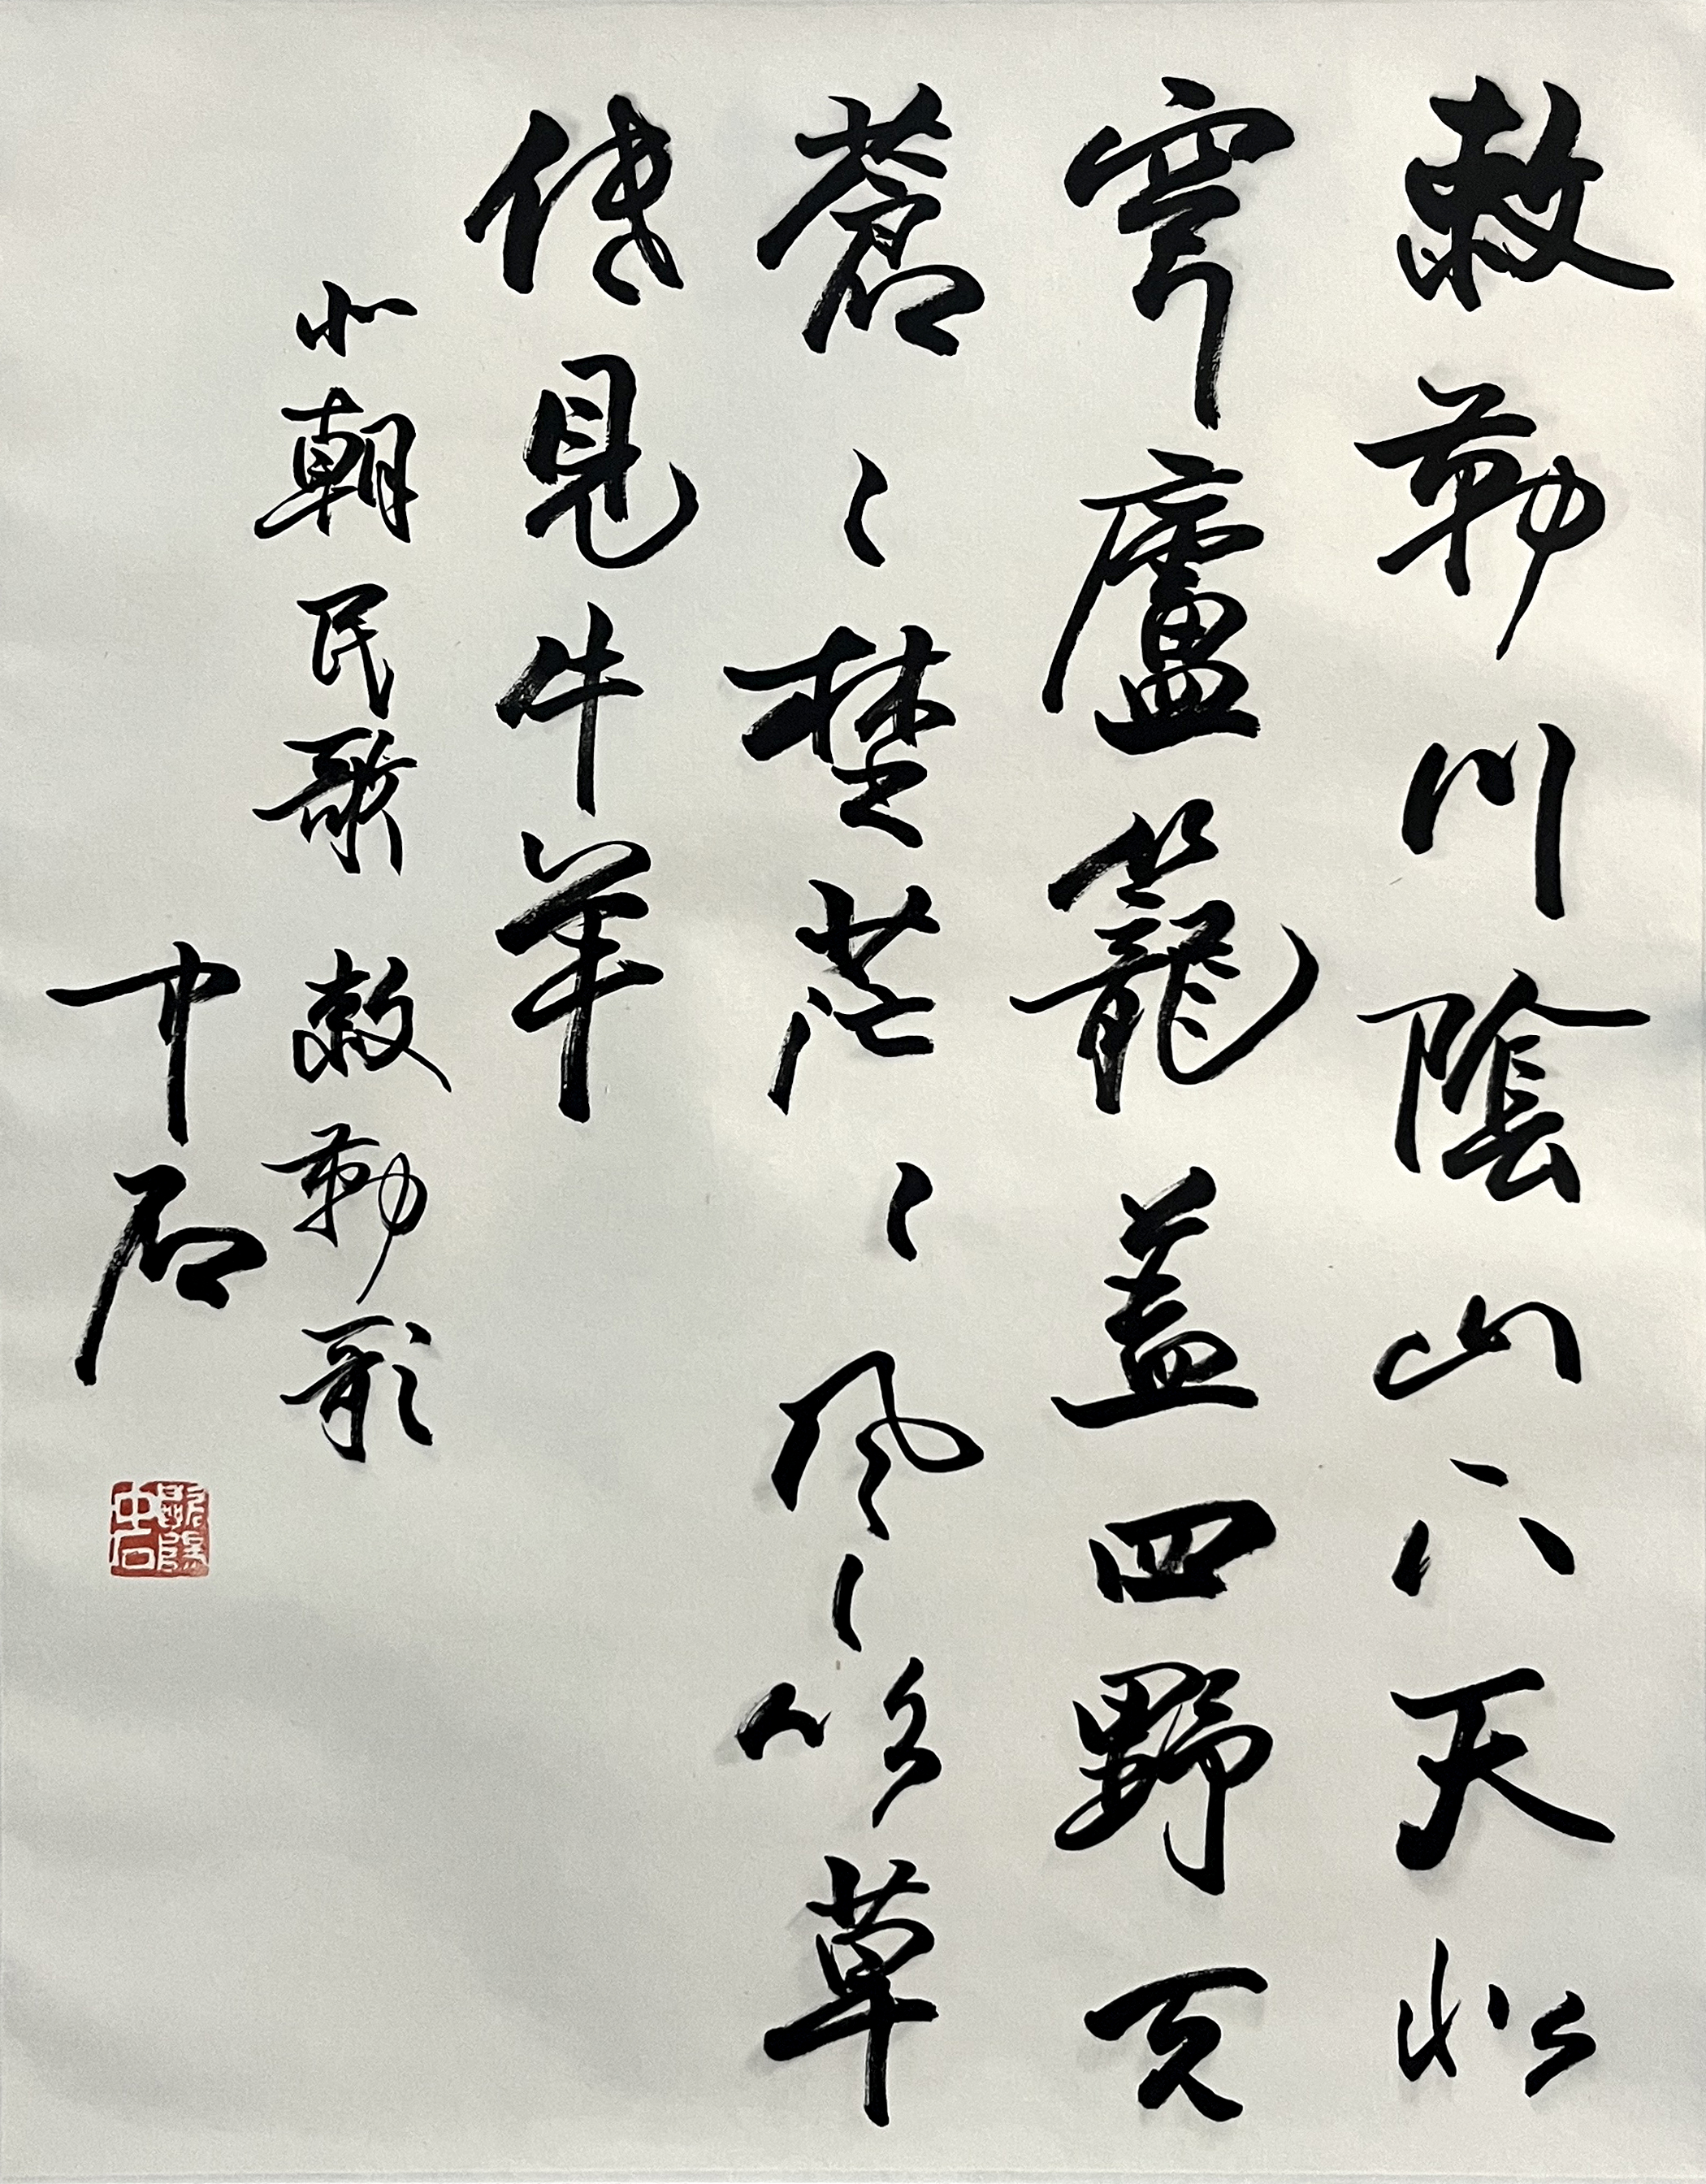 敕勒川陰山下天似
穹廬籠蓋四野天
蒼々埜茫々風吹草
低見牛羊
北朝民歌敕勒歌
中石
歐陽中石